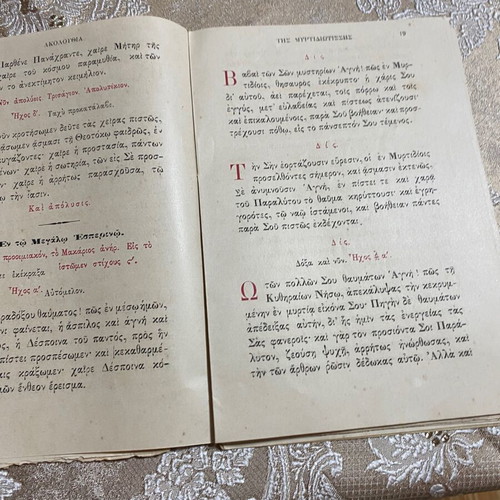 ΑΚΟΛΟΥΘΙΑ
Παρθένε Πανάχραντε. χαῖρε Μήτηρ τῆς
χαῖρε τοῦ κόσμου παραμυθία, καὶ τῶν
τὸ ἀνεκτίμητον κειμήλιον.
Νῦν ἀπολύεις. Τρισάγιον. Ἀπολυτίκιον.
Ἦχος δ΄. Ταχὺ προκατάλαβε.
κροτήσωμεν δεῦτε τὰς χεῖρας πιστῶς,
ᾄσωμεν ᾄσμασι τῇ Θεοτόκῳ φαιδρῶς, ἐν
κραυγάζοντες· χαῖρε ἡ προστασία, πάντων
χαῖρε ἡ σωτηρία, τῶν εἰς Σὲ προσ-
χαῖρε ἡ ἀρρήτως παρασχοῦσα, τῷ
τὴν ἴασιν.
Καὶ ἀπόλυσις.
Ἐν τῷ Μεγάλῳ Ἑσπερινῷ.
προοιμιακόν, τὸ Μακάριος ἀνήρ. Εἰς τὸ
ἐκέκραξα ἱστῶμεν στίχους ς΄.
Ἦχος α΄. Αὐτόμελον.
παραδόξου θαύματος! πῶς ἐν μέσῳ ἡμῶν,
φαίνεται, ἡ ἄσπιλος καὶ ἁγνὴ καὶ
ἡ Δέσποινα τοῦ παντός, πρὸς ἣν
πίστει προσπέσωμεν· καὶ κεκαθαρμέ-
κράξωμεν· χαῖρε Δέσποινα κό-
ἔνθεον ἔρεισμα.
ΤΗΣ ΜΥΡΤΙΔΙΩΤΙΣΣΗΣ 19
Δίς
Βαβαὶ τῶν Σῶν μυστηρίων Ἁγνή! πῶς ἐν Μυρ-
τιδίοις, θησαυρὸς ἐκέκρυπτο· ἡ χάρις Σου
δι᾽ αὐτοῦ. ἀεὶ παρέχεται, τοῖς πόρρω καὶ τοῖς
ἐγγύς, μετ᾽ εὐλαβείας καὶ πίστεως ἀτενίζουσι·
καὶ ἐπικαλουμένοις. παρὰ Σοῦ βοήθειαν καὶ προσ-
τρέχουσι πόθῳ, εἰς τὸ πάνσεπτόν Σου τέμενος.
Δίς.
Τὴν Σὴν ἑορτάζουσιν εὕρεσιν, οἱ ἐν Μυρτιδίοις
προσελθόντες σήμερον, καὶ ᾄσμασιν ἐκτενῶς
σὲ ἀνυμνοῦσιν Ἁγνή, ἐν πίστει τε καὶ χαρᾷ
τοῦ Παραλύτου τὸ θαῦμα κηρύττουσι· καὶ ἐγρη-
γορότες, τῷ ναῷ ἱστάμενοι, καὶ βοήθειαν πάντες
παρὰ Σοῦ πιστῶς ἐκδέχονται.
Δίς.
Δόξα καὶ νῦν. Ἦχος
Ὢ τῶν πολλῶν Σου θαυμάτων Ἁγνή! πῶς τῇ
Κυθηραίων Νήσῳ, ἀπεκάλυψας τὴν κεκρυμ-
μένην ἐν μυρτίᾳ εἰκόνα Σου· Πηγὴν δὲ θαυμάτων
ἀπέδειξας αὐτήν, δι᾽ ἧς ἡμῖν τὰς ἐνεργείας τὰς
Σὰς φανεροῖς· καὶ γὰρ τὸν προσιόντα Σοι Παρά-
λυτον, ζεούσῃ ψυχῇ, ἀρρήτως ἠνώρθωσας, καὶ
τὴν τῶν ἄρθρων ῥῶσιν δέδωκας αὐτῷ. Ἀλλὰ καὶ